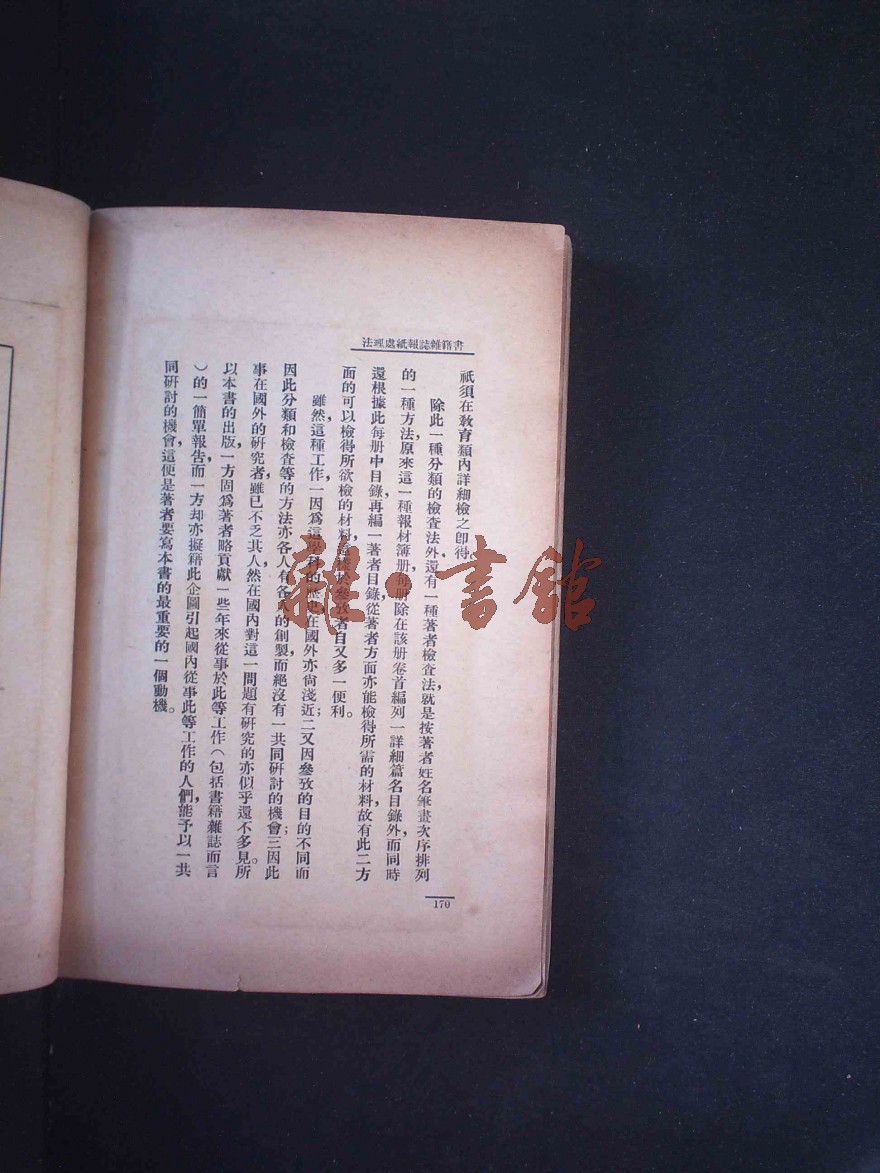 書籍雜誌報紙處理法
祇須在教育類內詳細檢之卽得。
除此一種分類的檢查法外，還有一種著者檢查法，就是按著者姓名筆畫次序排列
的一種方法，原來這一種報材簿册，每册除在該册卷首編列一詳細篇名目錄外，而同時
還根據此每册中目錄，再編一著者目錄，從著者方面亦能檢得所需的材料，故有此二方
面的可以檢得所欲檢的材料，這樣於參攷者自又多一便利。
雖然，這種工作，一因爲這學科的歷史，在國外亦尙淺近；二又因參攷的目的不同而
因此分類和檢查等的方法亦各人有各人的創製，而絕沒有一共同研討的機會；三因此
事在國外的研究者，雖已不乏其人，然在國內對這一問題有研究的亦似乎還不多見。所
以本書的出版，一方固爲著者略貢獻一些年來從事於此等工作（包括書籍雜誌而言
）的一簡單報告，而一方却亦擬籍此企圖引起國內從事此等工作的人們，能予以一共
同研討的機會，這便是著者要寫本書的最重要的一個動機。
170
雜·書館